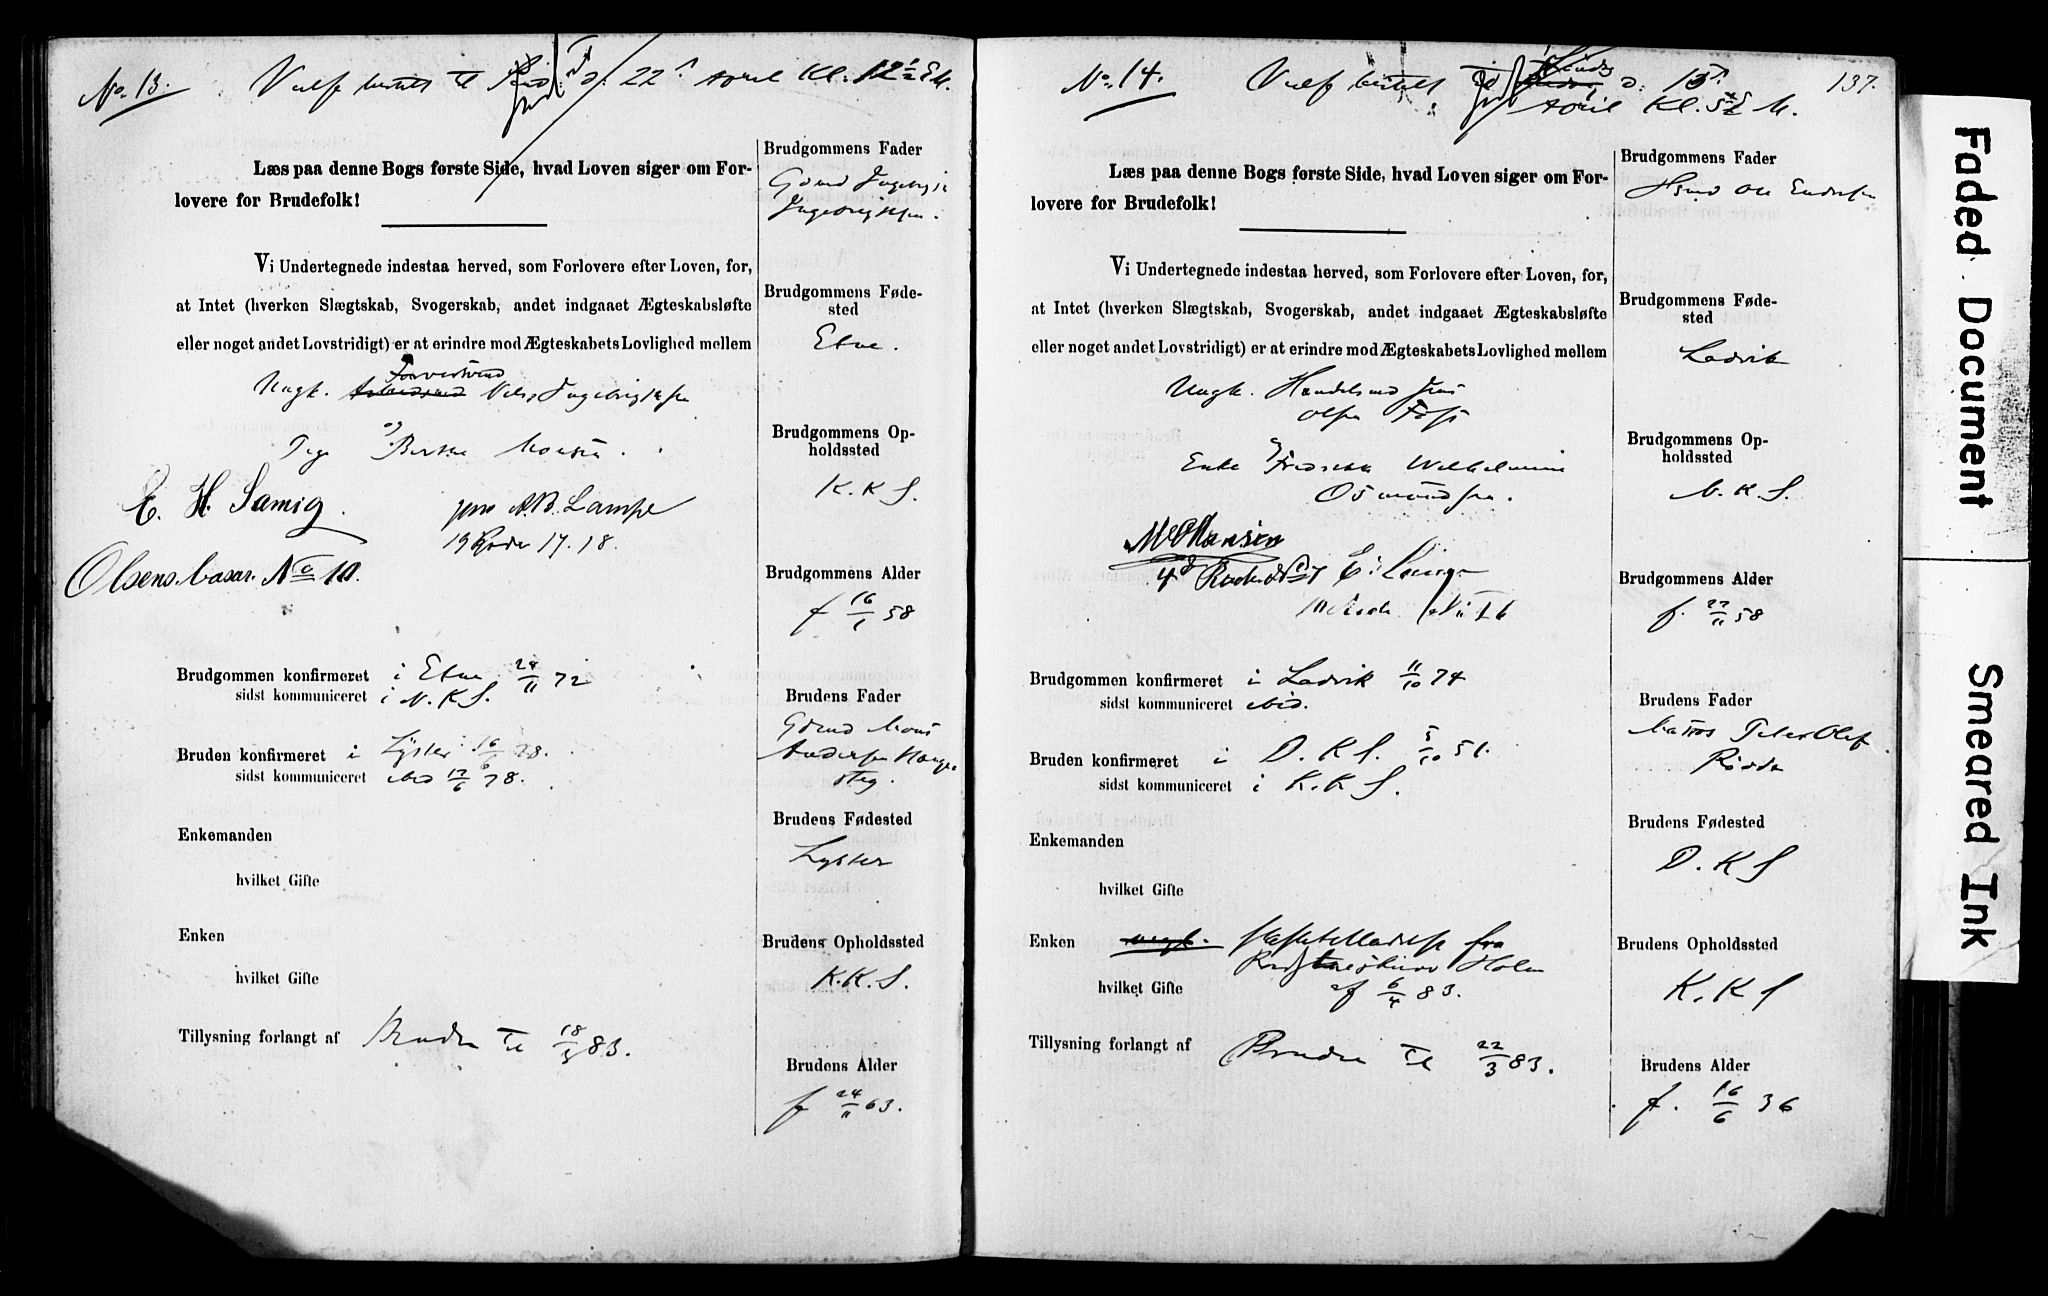 No. 13.
22 april Kl. 12 1/2 E M.
Læs paa denne Bogs første Side, hvad Loven siger om For-
lovere for Brudefolk!
Vi Undertegnede indestaa herved, som Forlovere efter Loven, for,
at Intet (hverken Slægtskab, Svogerskab, andet indgaaet Ægteskabsløfte
eller noget andet Lovstridigt) er at erindre mod Ægteskabets Lovlighed mellem
Ungk. Nils Ingebrigtsen
Pige
E. H. Samig. Jens A. B. Lampe
19 Rode 17.18.
Olsens. basar. No 10.
Brudgommen konfirmeret i Etne 24/11 72
sidst kommuniceret i N. K S.
Bruden konfirmeret i Lyster 16/6 78.
sidst kommuniceret ibid 17/6 78.
Enkemanden
hvilket Gifte
Enken
hvilket Gifte
Tillysning forlangt af Bruden til 18/3 83.
Brudgommens Fader
Gdmd
Ingebrigtsen.
Brudgommens Føde-
sted
Etne.
Brudgommens Op-
holdssted
K. K S.
Brudgommens Alder
f 16/1 58
Brudens Fader
Gdmd Mons
Andersen
Brudens Fødested
Lyster
Brudens Opholdssted
K. K. S.
Brudens Alder
f 24/11 63.
No. 14.
d. 15
april Kl. 5 E M.
137.
Læs paa denne Bogs første Side, hvad Loven siger om For-
lovere for Brudefolk!
Vi Undertegnede indestaa herved, som Forlovere efter Loven, for,
at Intet (hverken Slægtskab, Svogerskab, andet indgaaet Ægteskabsløfte
eller noget andet Lovstridigt) er at erindre mod Ægteskabets Lovlighed mellem
Ungk. Handelsmd Jens
Olsen
Enke Fredrikke Wilhelmine
Osmundsen.
M O Hansen
4d Rode No 7
Brudgommen konfirmeret i Ladvik 11/10 74
sidst kommuniceret ibid.
Bruden konfirmeret i D. K S. 5/10 51.
sidst kommuniceret i K. K S.
Enkemanden
hvilket Gifte
Enken Skifteattest fra
Holm
hvilket Gifte af 6/4 83.
Tillysning forlangt af Bruden til 22/3 83.
Brudgommens Fader
Hsmd Ole Endresen
Brudgommens Føde-
sted
Ladvik
Brudgommens Op-
holdssted
N. K S.
Brudgommens Alder
f. 22/11 58
Brudens Fader
Matros Peter Olsen
Brudens Fødested
D. K S
Brudens Opholdssted
K. K S
Brudens Alder
f. 16/6 36
Faded Document
Smeared Ink